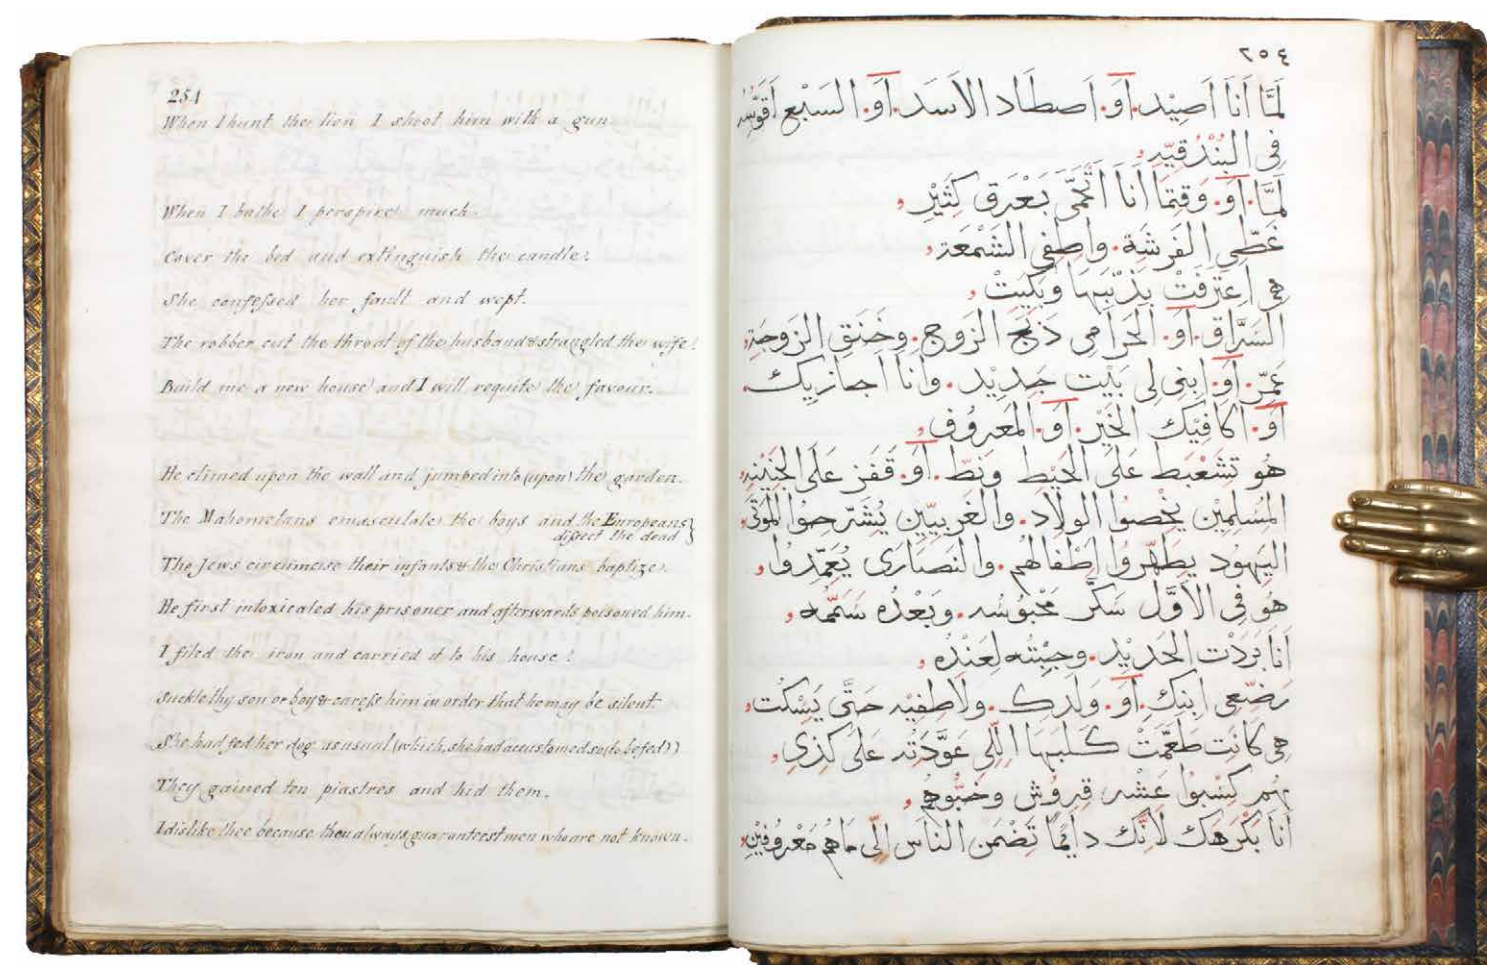 254
When I hunt the lion I shoot him with a gun
When I bathe I perspire much.
Cover the bed and extinguish the candle!
She confessed her fault and wept.
The robber cut the throat of the husband & strangled the wife!
Build me a new house and I will requite the favour.
He climed upon the wall and jumped into (upon) the garden.
The Mahometans emasculate the boys and the Europeans
disect the dead
The Jews circumcise their infants & the Christians baptize.
He first intoxicated his prisoner and afterwards poisoned him.
I filed the iron and carried it to his house!
Suckle thy son or boy & caress him in order that he may be silent.
She had fed her dog as usual (which, she had accustomed so (to be fed))
They gained ten piastres and hid them.
I dislike thee because thou always guaranteest men who are not known.
٢٥٤
لَمَّا اَنَا اَصِيْد. اَوْ. اَصطَاد الاَسَد. اَوْ. السَبْع اَقَوِّسُه
فِى البُنْدُقيِّه
لَمَّا. اَوْ. وَقِتمَا اَنَا اَتْحَمَّى بَعْرَق كَثِيْر
غَطِّى الفَرشَة. واطفِى الشَمْعَة
هِى اِعتَرَفَتْ بِذَنْبِهَا وَبَكِيَتْ
السَّرَّاق. اَوْ. الحَرَامِى ذَبَحَ الزَوج. وخَنَق الزَوجَة
عَمِّر. اَوْ. اِبنِى لِى بَيْت جَدِيْد. وَاَنَا اجازيك
اَوْ. اَكَافِيْك الخَيْر. اَوْ. المَعرُوف
هُو تشَعْبَط عَلَى الحَيْط ونَطّ. اَوْ. قَفَز عَلَى الجنَيْنِه
المُسْلِمِيْن يخْصوُا الوِلاد. والغَربِيِّين يُشَرِّحوُا المَوتَى
اليَهُود يطَهِّرُوا اطْفَالهُم. والنَصَارى يُعَمِّدوُا
هُو فِى الاَوَّل سَكَّر مَحْبوُسُه. وَبَعْدُه سَمَّمُه
اَنَا بَرَدْت الحَدِيْد. وجِبْتُه لعَنْدُه
رَضِّعِى اِبنِك. اَوْ. وَلَدِك. ولاطِفِيْه حَتَّى يَسْكُت
هِى كَانَت طَعَّمَتْ كَلبَهَا اللِّى عَوَّدَتُه عَلَى كَذِى
هُم كِسْبوُا عَشْر قرُوْش وخَبُّوهُم
اَنَا بَكْرَهَك لاَنَّك دَايمًا تَضْمَن النَاس الِّى مَاهُم مَعْرُوفِيْن